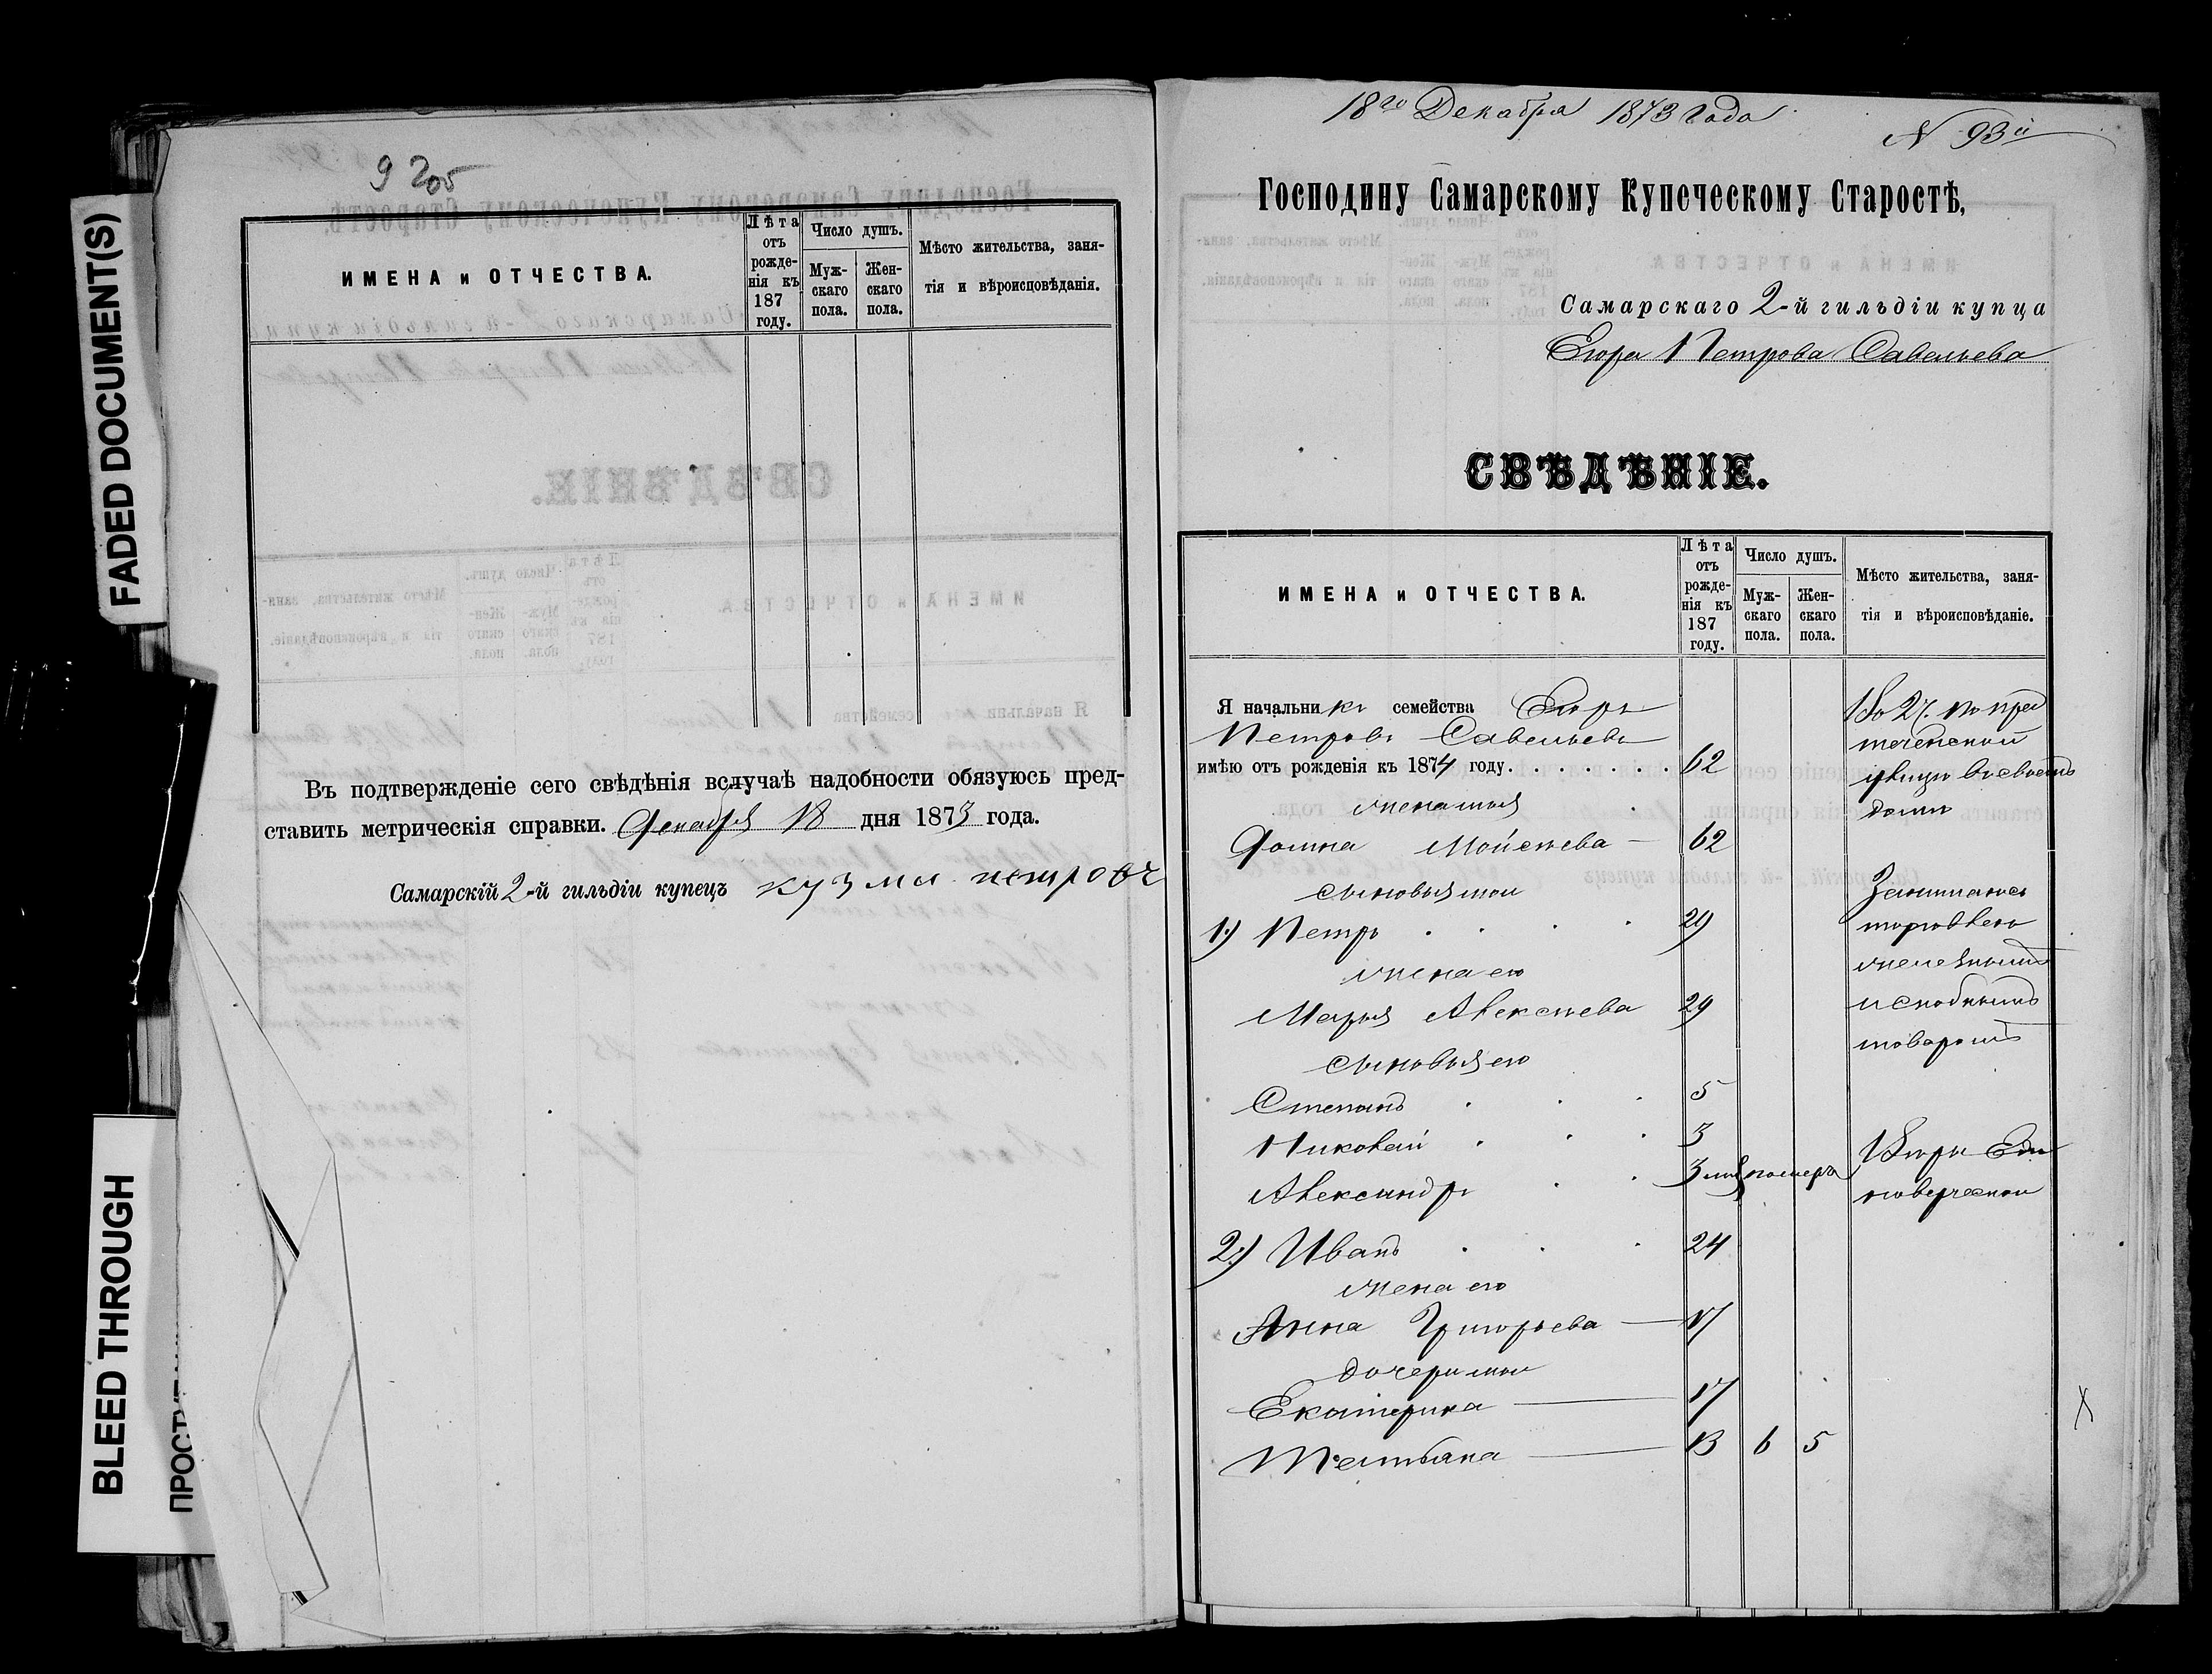 FADED DOCUMENT(S)
BLEED THROUGH
9 205
ИМЕНА и ОТЧЕСТВА.
Лѣта отъ рожденія къ 187 году.
Число душъ.
Мужскаго пола.
Женскаго пола.
Мѣсто жительства, занятія и вѣроисповѣданія.
Въ подтвержденіе сего свѣдѣнія вслучаѣ надобности обязуюсь пред-
ставить метрическія справки. Декабря 18 дня 1873 года.
Самарскій 2-й гильдіи купецъ кузма петровъ
18го Декабря 1873 Года
N 93й
Господину Самарскому Купеческому Старостѣ,
Самарскаго 2-й гильдіи купца
Егора Петрова Савельева
СВѢДѢНІЕ.
ИМЕНА и ОТЧЕСТВА.
Лѣта отъ рожденія къ 187 году.
Число душъ.
Мужскаго пола.
Женскаго пола.
Мѣсто жительства, занятія и вѣроисповѣданіе.
Я начальникъ семейства Егоръ
Петровъ Савельевъ
имѣю отъ рожденія къ 1874 году. 62
жена моя
Домна Моисеева 62
сыновья мои
1.) Петръ 29
жена его
Марья Алексеева 29
сыновья его
Степанъ 5
Николай 3
Александръ 3 мце померъ
2.) Иванъ 24
жена его
Анна Григорьева 17
дочери мои
Екатерина 17
Татьяна 13 6 5
Во 2 ч. по пред
теченской
улицы въ своемъ
доми
Занимаюсь
торговлею
железнымъ
и скобнымъ
товаромъ
Веры Еди
новерческой